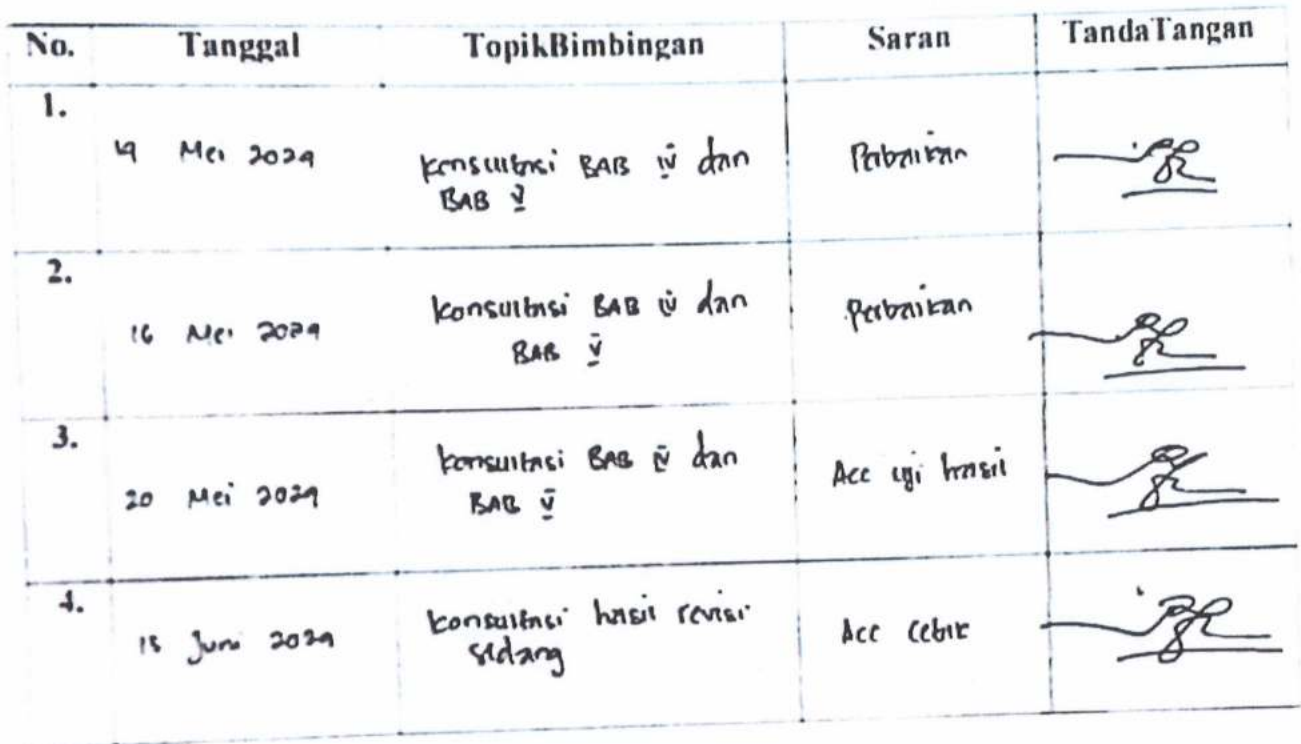 No. Tanggal TopikBimbingan Saran TandaTangan
1.
14 Mei 2024 konsultasi BAB IV dan Perbaikan
BAB V
2.
16 Mei 2024 konsultasi BAB IV dan Perbaikan
BAB V
3.
20 Mei 2024 konsultasi BAB IV dan Acc uji hasil
BAB V
4.
15 Juni 2024 konsultasi hasil revisi Acc Cetak
sidang